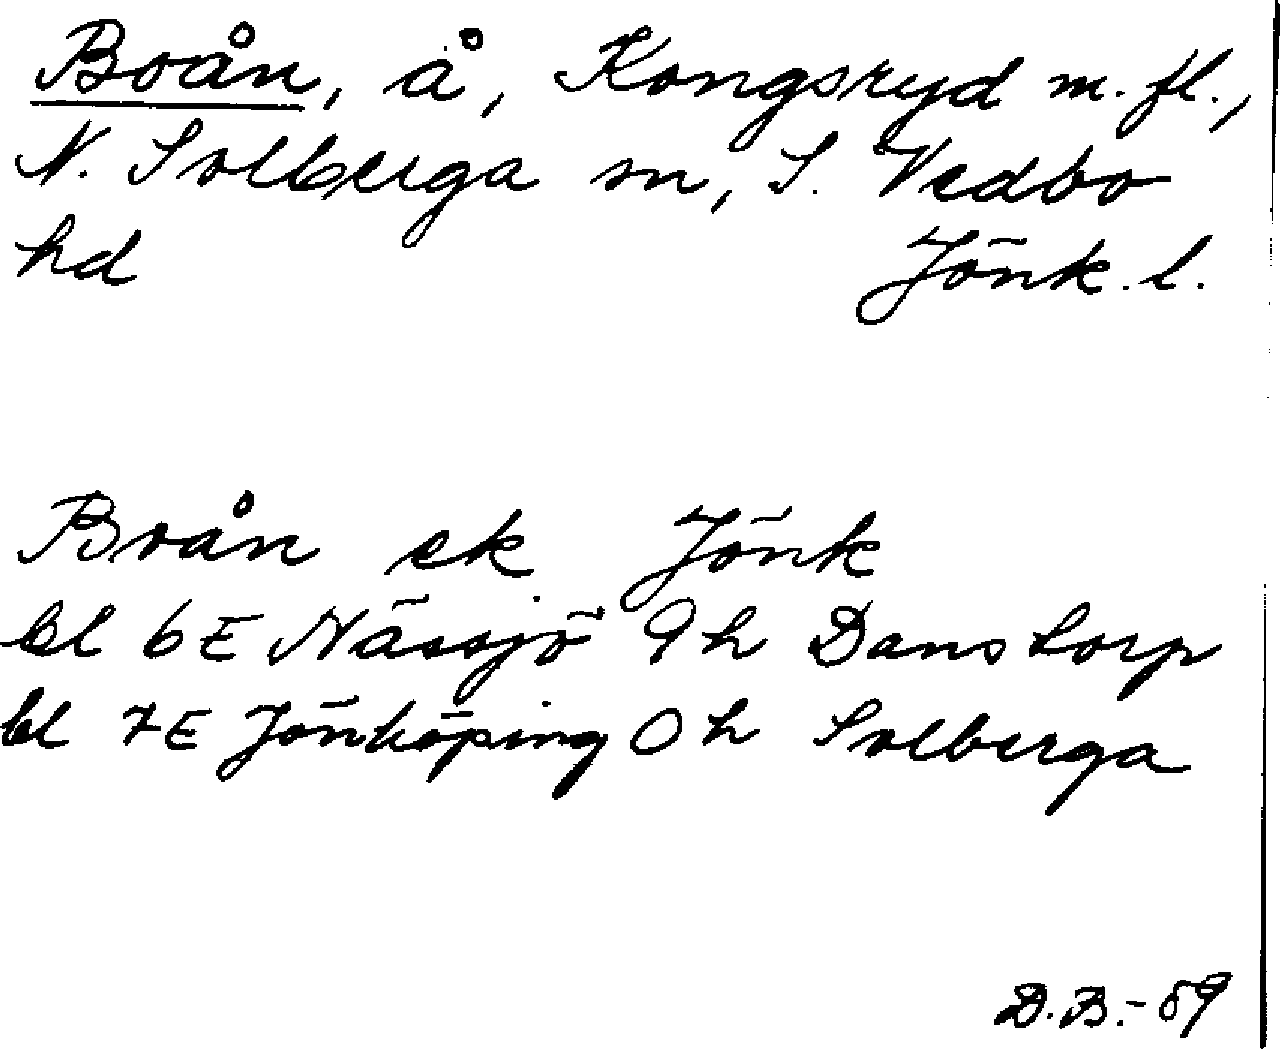 Boån, å, Kongsryd m.fl.,
N. Solberga sn, S. Vedbo
hd Jönk.l.
Boån ek. Jönk
bl 6E Nässjö 9h Danstorp
bl 7E Jönköping 0h Solberga
D.B.-59